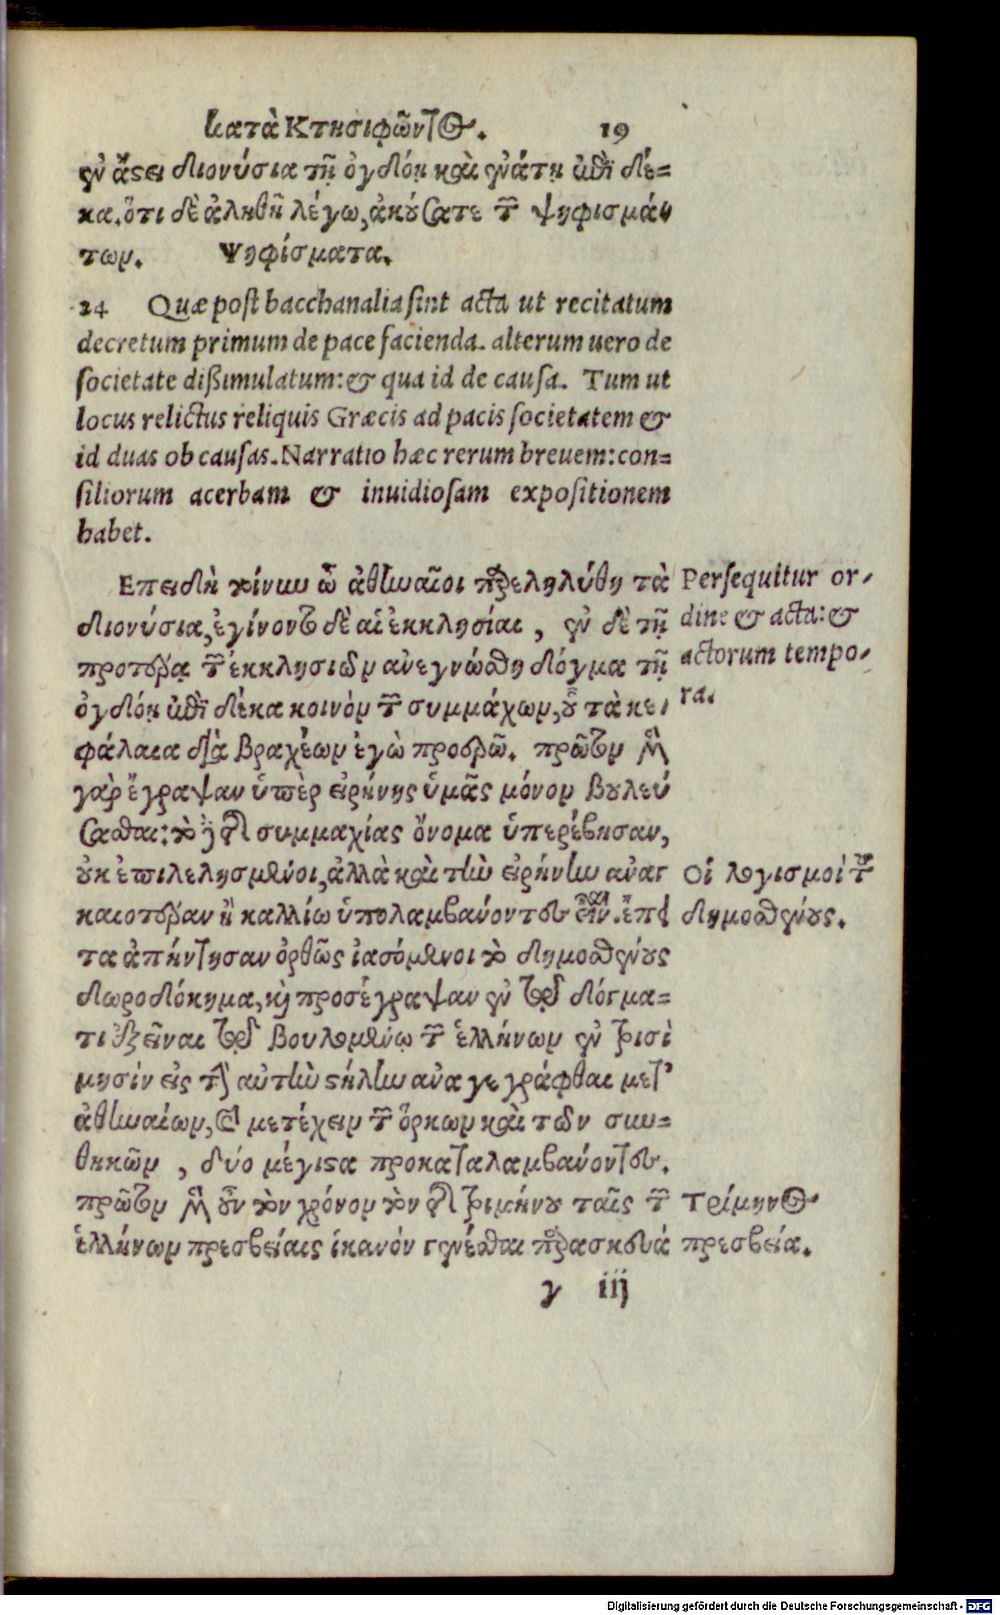 κατὰ Κτησιφῶντος. 19
ἐν ἄστει διονύσια τῇ ὀγδόῃ καὶ ἐνάτῃ ἐπὶ δέ=
κα. ὅτι δὲ ἀληθῆ λέγω, ἀκούσατε τῶν ψηφισμά-
των. Ψηφίσματα.
24 Quæ post bacchanalia sint acta ut recitatum
decretum primum de pace facienda. alterum uero de
societate dißimulatum: & qua id de causa. Tum ut
locus relictus reliquis Græcis ad pacis societatem &
id duas ob causas. Narratio hæc rerum breuem: con=
siliorum acerbam & inuidiosam expositionem
habet.
Ἐπειδὴ τοίνυν ὦ ἀθηναῖοι παρεληλύθη τὰ
διονύσια, ἐγίνοντο δὲ αἱ ἐκκλησίαι, ἐν δὲ τῇ
προτέρᾳ τῶν ἐκκλησιῶν ἀνεγνώσθη δόγμα τῇ
ὀγδόῃ ἐπὶ δέκα κοινὸν τῶν συμμάχων, οὗ τὰ κε-
φάλαια διὰ βραχέων ἐγὼ προερῶ. πρῶτον μὲν
γὰρ ἔγραψαν ὑπὲρ εἰρήνης ὑμᾶς μόνον βουλεύ
σασθαι: τὸ δὲ τῆς συμμαχίας ὄνομα ὑπερέβησαν,
οὐκ ἐπιλελησμένοι, ἀλλὰ καὶ τὴν εἰρήνην ἀναγ
καιοτέραν ἢ καλλίω ὑπολαμβάνοντες εἶναι. ἔπει
τα ἀπήντησαν ὀρθῶς ἰασόμενοι τὸ δημοσθένους
δωροδόκημα, καὶ προσέγραψαν ἐν τῷ δόγμα=
τι ἐξεῖναι τῷ βουλομένῳ τῶν ἑλλήνων ἐν τρισὶ
μησὶν εἰς τὴν αὐτὴν στήλην ἀναγεγράφθαι μετ'
ἀθηναίων, καὶ μετέχειν τῶν ὅρκων καὶ τῶν συν=
θηκῶν, δύο μέγιστα προκαταλαμβάνοντες.
πρῶτον μὲν οὖν τὸν χρόνον τὸν τῆς τριμήνου ταῖς τῶν
ἑλλήνων πρεσβείαις ἱκανὸν γενέσθαι παρασκευά
γ iij
Persequitur or-
dine & acta: &
actorum tempo-
ra.
Οἱ λογισμοὶ τοῦ
δημοσθένους.
Τρίμηνος
πρεσβεία.
Digitalisierung gefördert durch die Deutsche Forschungsgemeinschaft - DFG